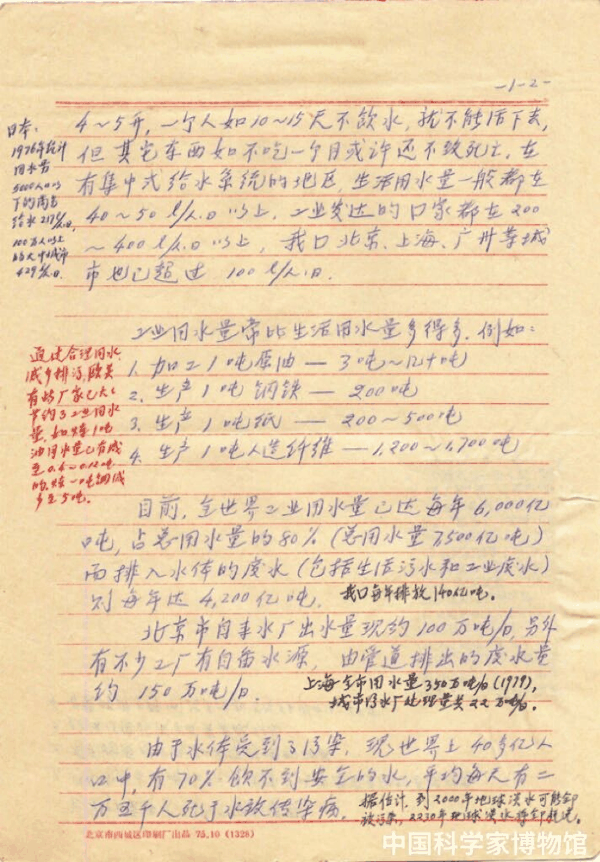 -1-2-
4~5升，一个人如10~15天不饮水，就不能活下去，
但其它东西如不吃一个月或许还不致死亡。在
有集中式给水系统的地区，生活用水量一般都在
40~50 l/人.日以上，工业发达的口家都在200
~400 l/人.日以上，我口北京、上海、广州等城
市也已超过100 l/人.日.
日本：
1976年统计
用水量
5000人口以
下的
给水217l/人.日,
100万人以上
的大中城市
429l/人.日.
工业用水量常比生活用水量多得多.例如：
1. 加工1吨原油 — 3吨~几十吨
2. 生产1吨钢铁 — 200吨
3. 生产1吨纸 — 200~500吨
4. 生产1吨人造纤维 — 1,200~1,700吨
通过合理用水
减少排污，欧美
有些厂家已大大
节约了工业用水
量，如炼1吨
油用水量已有减
至0.2吨
的，炼一吨钢减
少至5吨。
目前，全世界工业用水量已达每年6,000亿
吨，占总用水量的80%（总用水量7,500亿吨）
而排入水体的废水（包括生活污水和工业废水）
则每年达4,200亿吨. 我口每年排放140亿吨。
北京市自来水厂出水量现约100万吨/日，另外
有不少工厂有自备水源，由管道排出的废水量
约150万吨/日.
上海全市用水量350万吨/日(1979),
城市污水厂处理量共22万吨/日。
由于水体受到了污染，现世界上40多亿人
口中，有70%饮不到安全的水，平均每天有二
万五千人死于水致传染病。
据估计，到2000年地球淡水可能全部
被污染，2230年地球淡水将全部耗尽。
北京市西城区印刷厂出品 75.10 (1328)
中国科学家博物馆